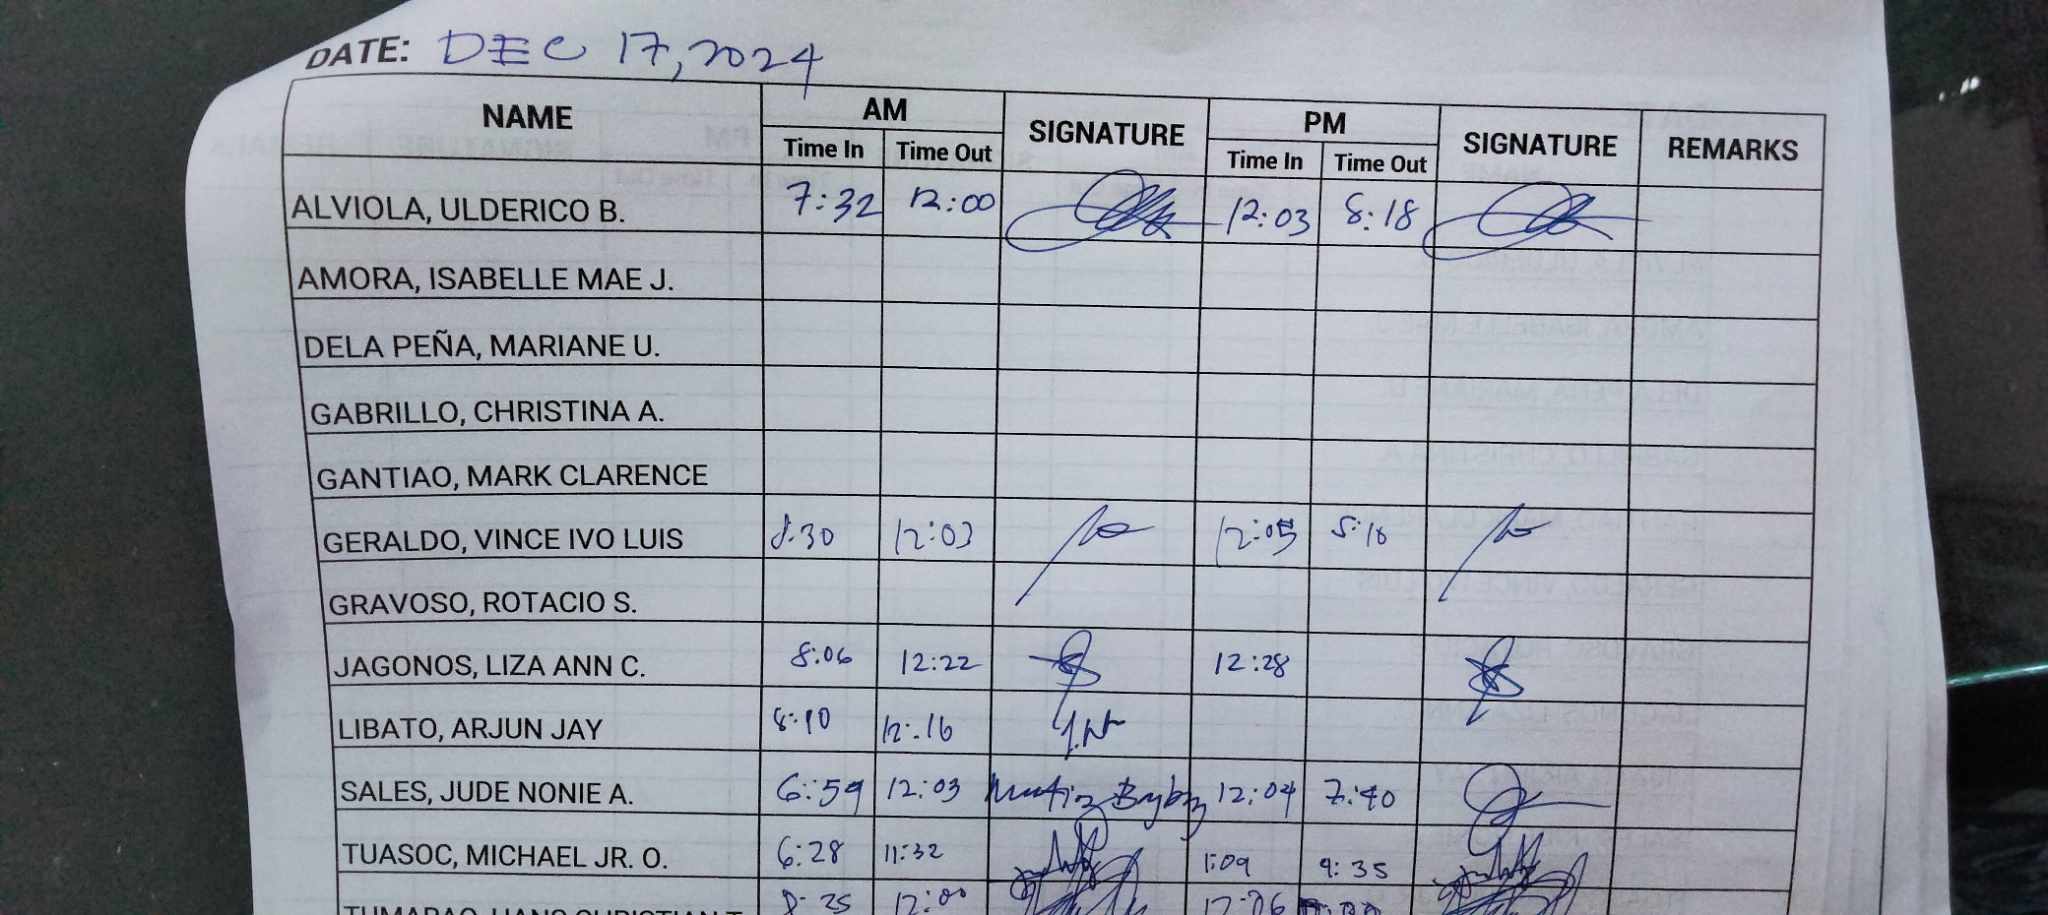 DATE: DEC 17, 2024
NAME AM SIGNATURE PM SIGNATURE REMARKS
Time In Time Out Time In Time Out
ALVIOLA, ULDERICO B. 7:32 12:00 12:03 8:18
AMORA, ISABELLE MAE J.
DELA PEÑA, MARIANE U.
GABRILLO, CHRISTINA A.
GANTIAO, MARK CLARENCE
GERALDO, VINCE IVO LUIS 8:30 12:03 12:05 5:18
GRAVOSO, ROTACIO S.
JAGONOS, LIZA ANN C. 8:06 12:22 12:28
LIBATO, ARJUN JAY 8:10 12:16
SALES, JUDE NONIE A. 6:59 12:03 12:04 7:40
TUASOC, MICHAEL JR. O. 6:28 11:32 1:09 9:35
8:25 12:00 12:06